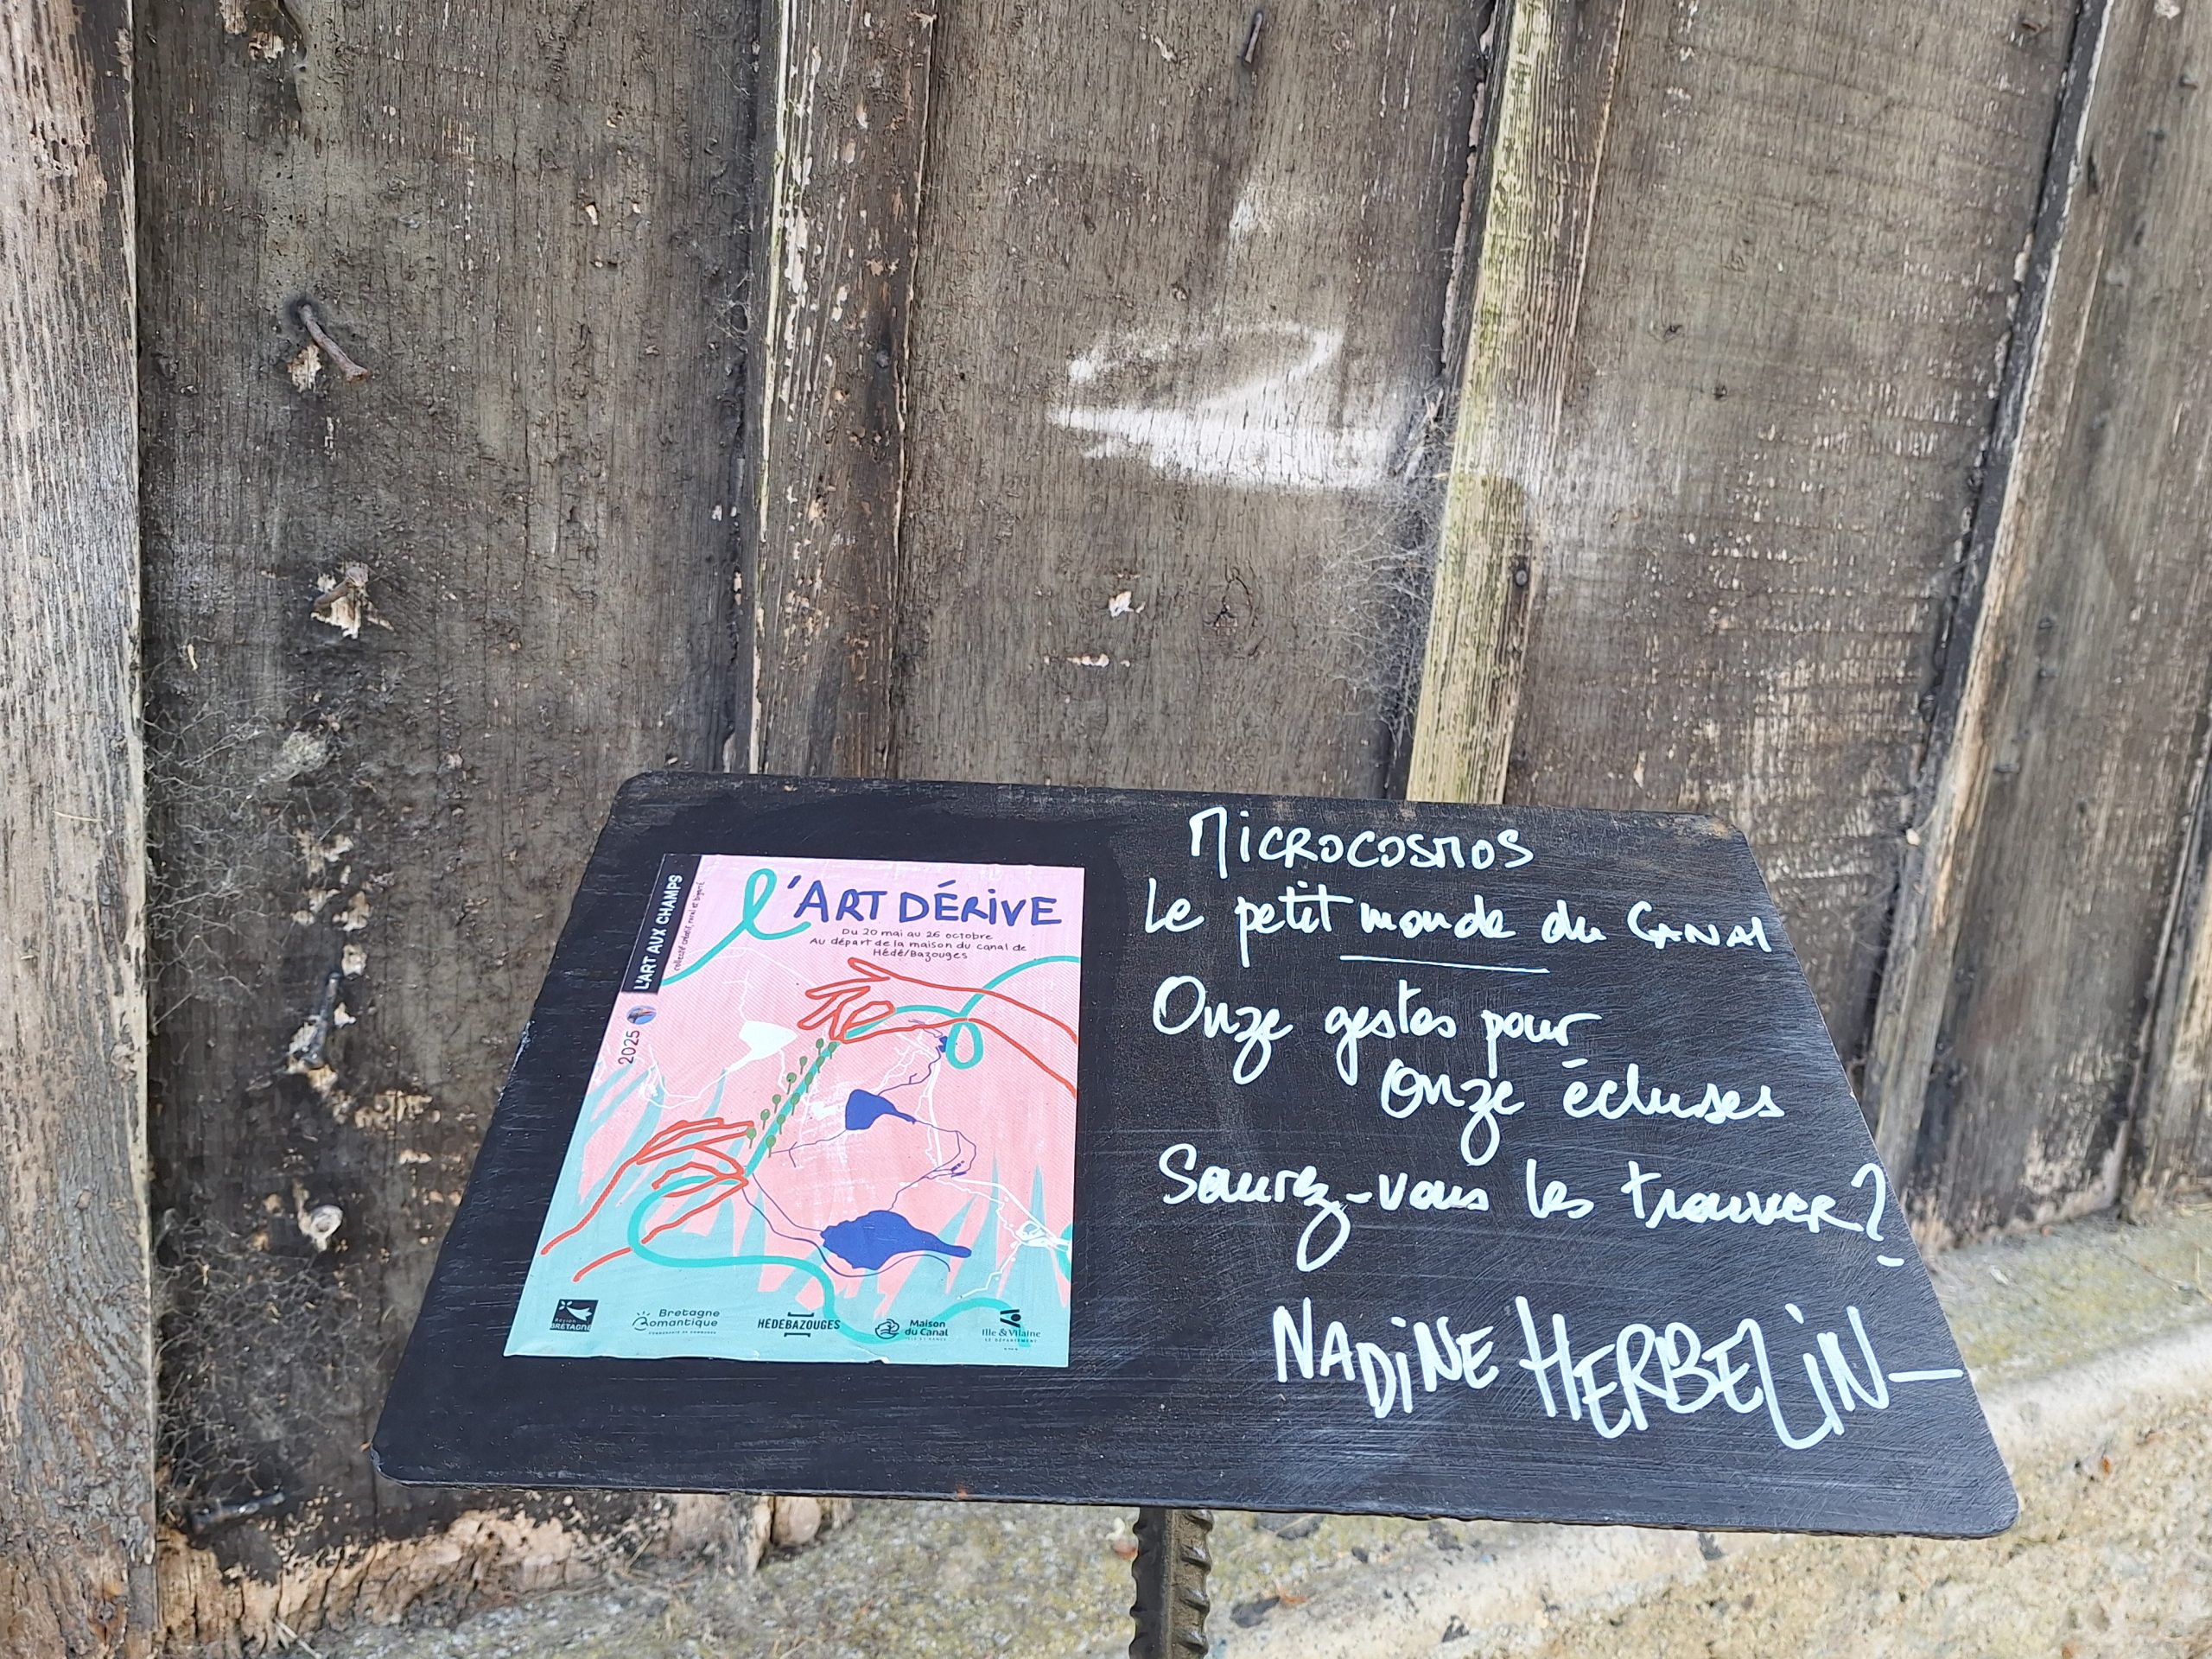 L'ART AUX CHAMPS
collectif créatif, rural et bigarré
2025
l'ART DÉRIVE
Du 20 mai au 26 octobre
Au départ de la maison du canal de
Hédé/Bazouges
Région
BRETAGNE
Bretagne
Romantique
COMMUNAUTÉ DE COMMUNES
HÉDÉBAZOUGES
Maison
du Canal
Ille & Vilaine
LE DÉPARTEMENT
MICROCOSMOS
Le petit monde du CANAL
Onze gestes pour
Onze écluses
Saurez-vous les trouver?
NADINE HERBELIN